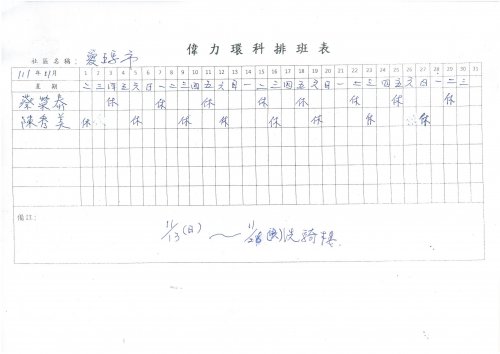 偉力環科排班表
社區名稱:
111年11月 1 2 3 4 5 6 7 8 9 10 11 12 13 14 15 16 17 18 19 20 21 22 23 24 25 26 27 28 29 30 31
星期 二 三 四 五 六 日 一 二 三 四 五 六 日 一 二 三 四 五 六 日 一 二 三 四 五 六 日 一 二 三
蔡榮泰 休 休 休 休 休 休 休 休
陳秀美 休 休 休 休 休 休 休 休
備註:
11/13(日) ~ 11/ 洗騎樓